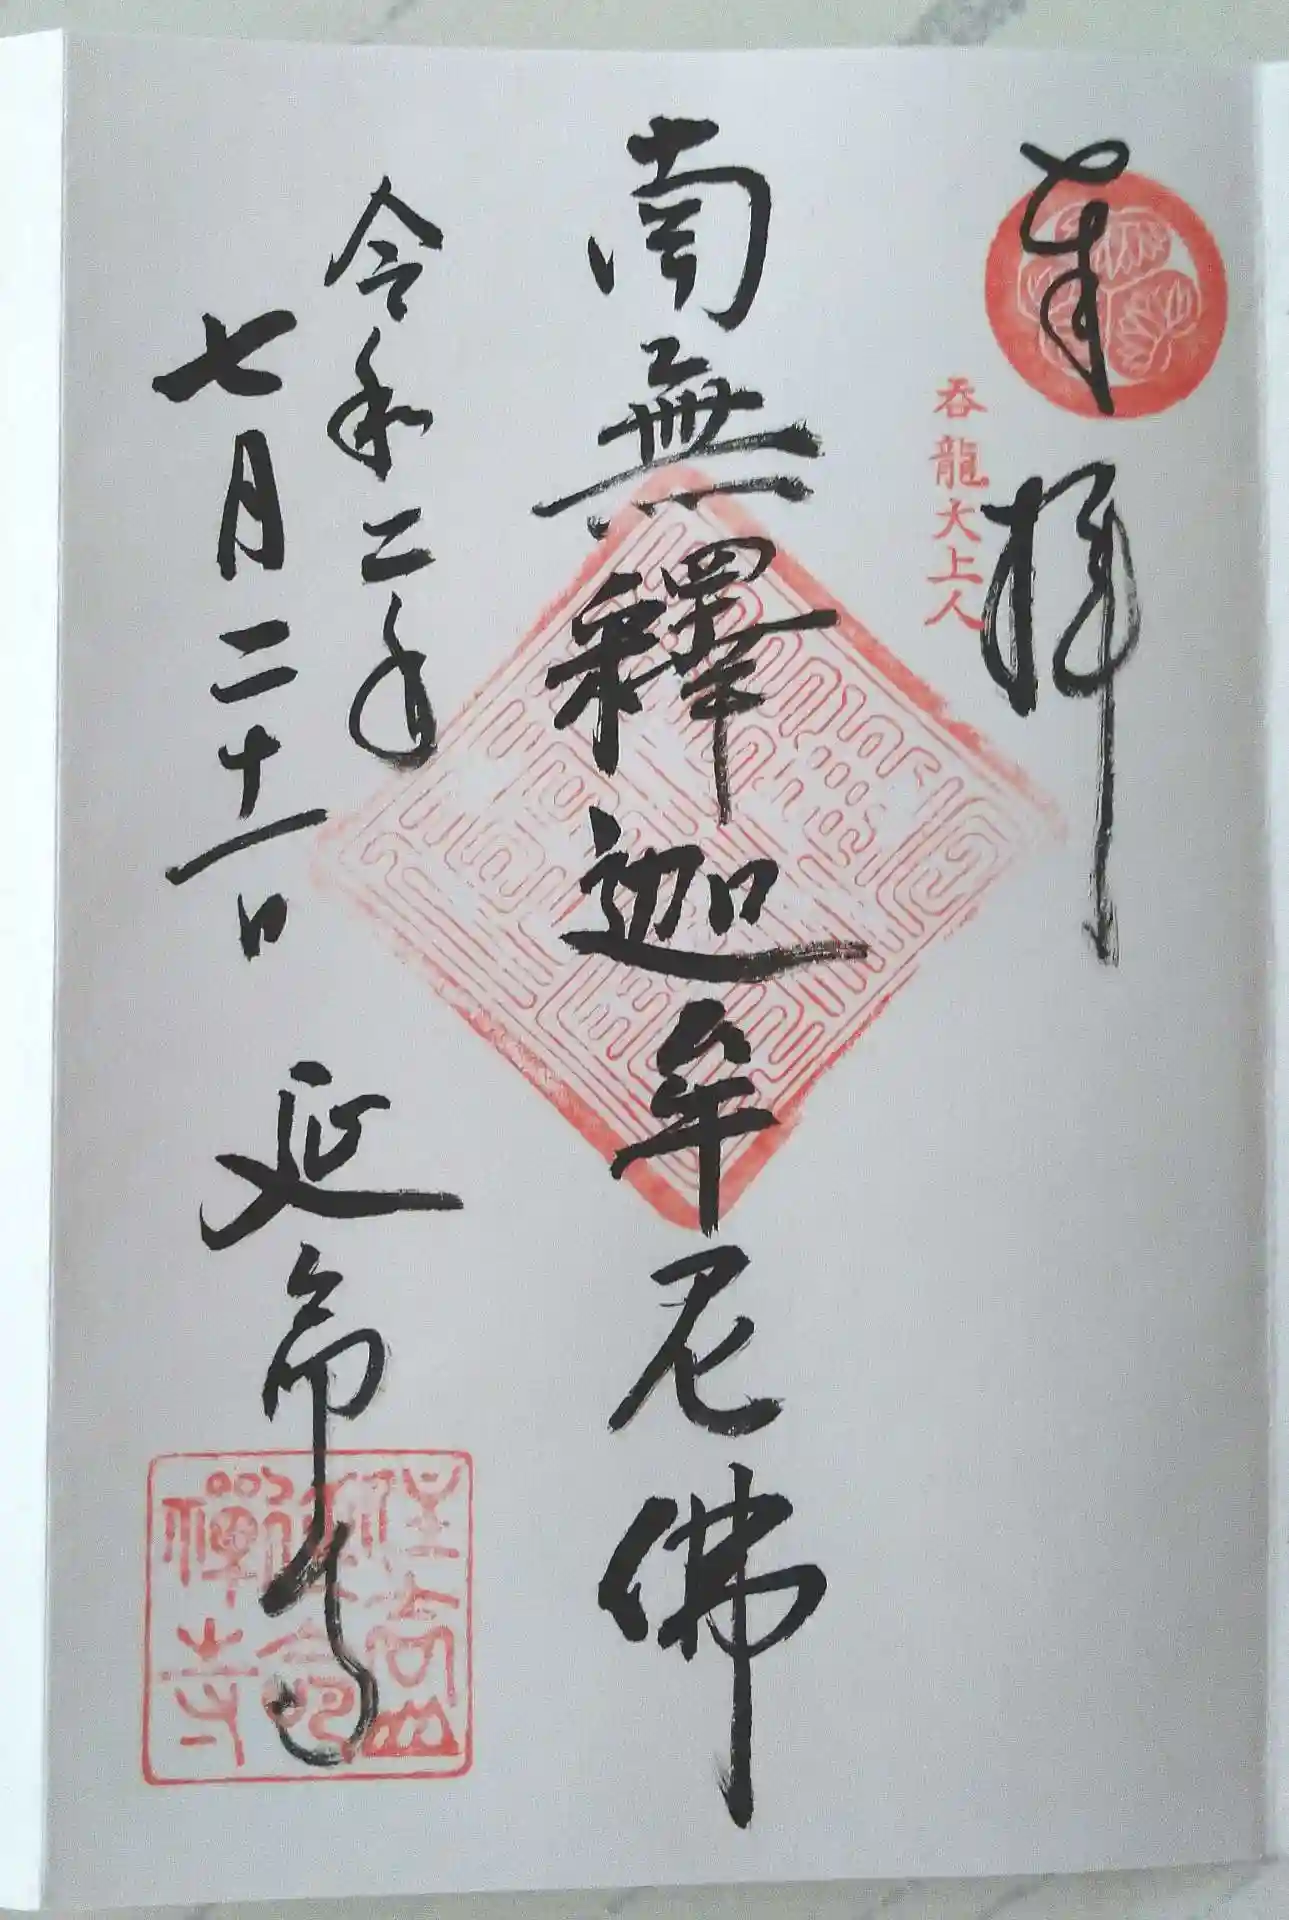 奉拝
吞龍大上人
南無釋迦牟尼佛
令和二年
七月二十一日
延命寺